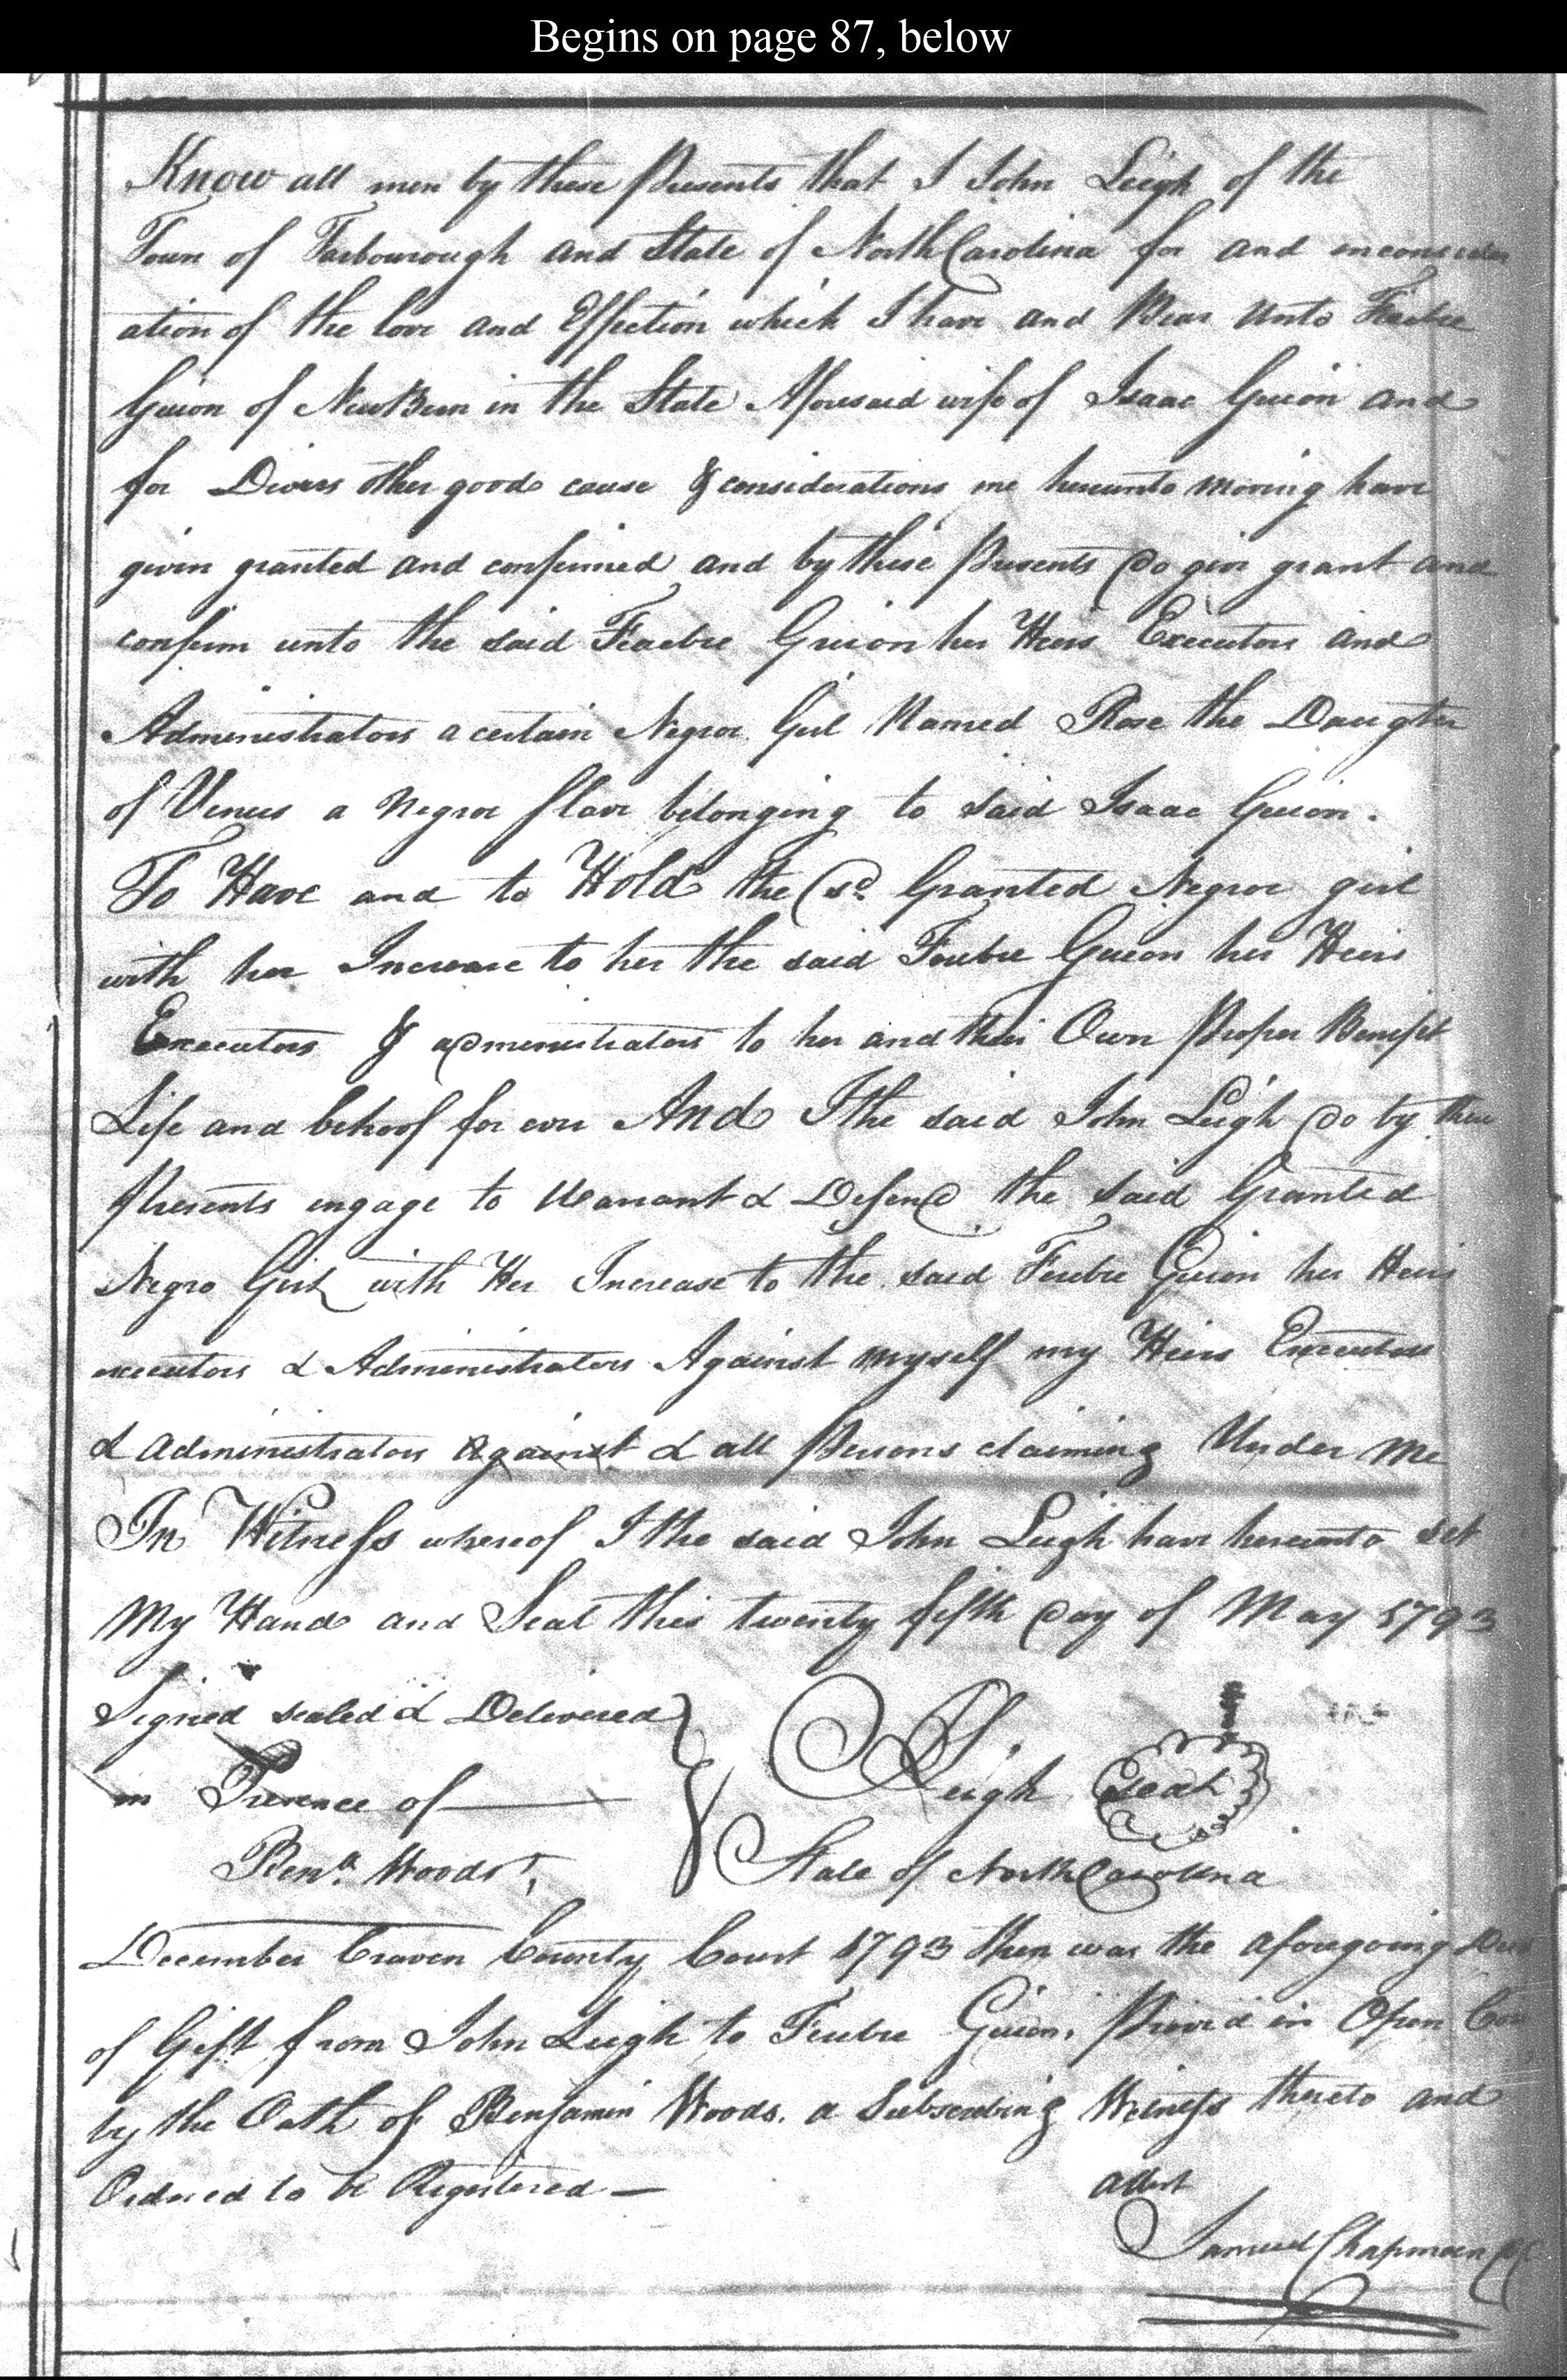 Begins on page 87, below
Know all men by these Presents that I John Leigh of the
Town of Tarbourough and State of North Carolina for and inconsider
ation of the love and Effection which I have and Bear Unto Feribe
Guion of NewBern in the State Aforesaid wife of Isaac Guion and
for Divers other good cause & considerations me hereunto moving have
given granted and confirmed and by these Presents Do give grant and
confirm unto the said Feribe Guion her Heirs Executors and
Administrators a certain Negroe Girl Named Rose the Daugter
of Venus a Negroe Slave belonging to said Isaac Guion.
To Have and to Hold the sd. Granted Negroe girl
with her Increase to her the said Feribe Guion her Heirs
Executors & administrators to her and their Own Proper Benefit
Life and behoof for ever And I the said John Leigh Do by these
Presents engage to Warrant & Defend the said Granted
Negro Girl with Her Increase to the said Feribe Guion her Heirs
executors & Administrators Against myself my Heirs Executors
& Administrators Against & all Persons claiming Under Me
In Witness whereof I the said John Leigh have hereunto set
My Hand and Seal this twenty fifth Day of May 1793
Signed sealed & Delivered
in Presence of
Benja. Woods
J. Leigh Seal
State of North Carolina
December Craven County Court 1793 then was the aforegoing Deed
of Gift from John Leigh to Feribe Guion, Proved in Open Cou
by the Oath of Benjamin Woods. a Subscribing Witness thereto and
Ordered to be Registered —
Attest
Samuel Chapman CC